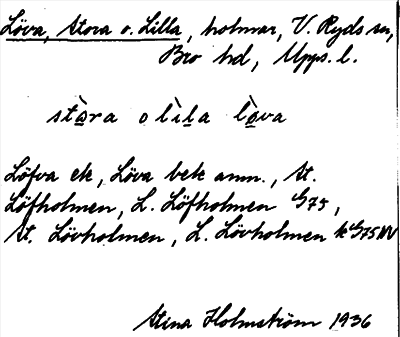 Löva, Stora o. Lilla, holmar, V. Ryds sn,
Bro hd, Upps. l.
stàra o lìla lòva
Löfva ek, Löva bek anm., St.
Löfholmen, L. Löfholmen G75,
St. Lövholmen, L. Lövholmen kG75NV
Stina Holmström 1936